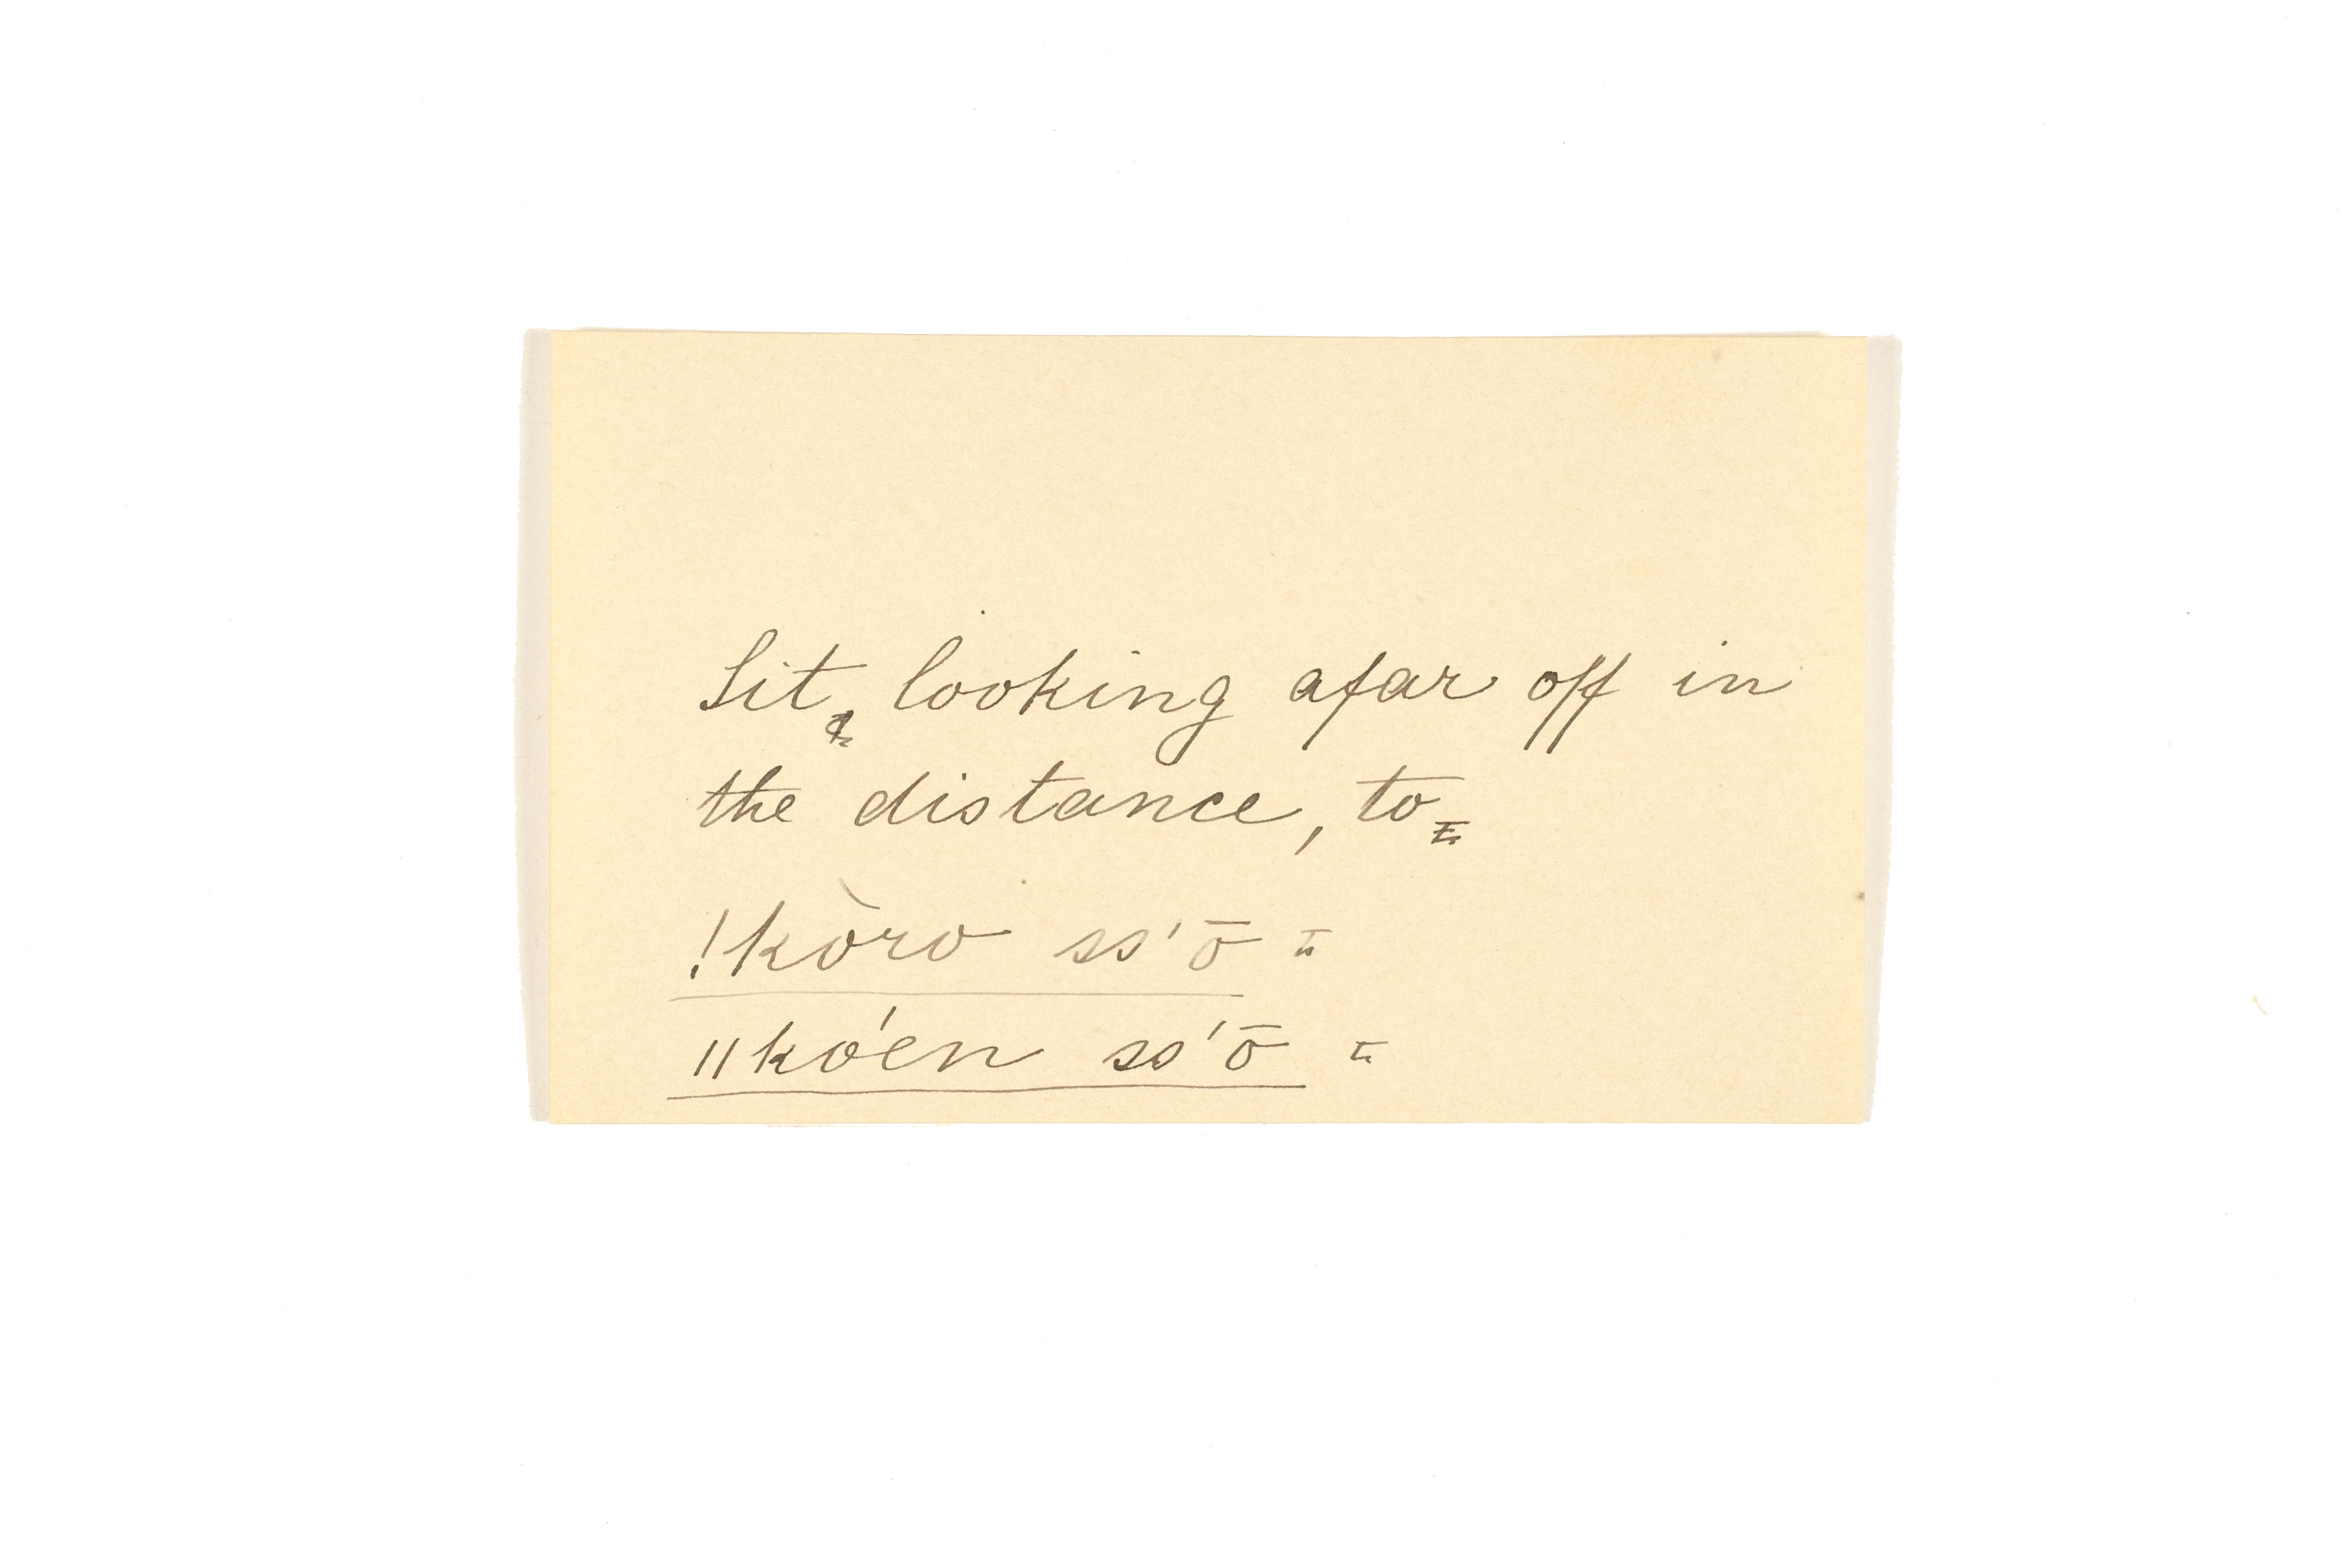 Sit, looking afar off in
the distance, to =
!kòro ss'ō =
ǁkóen ss'ō =